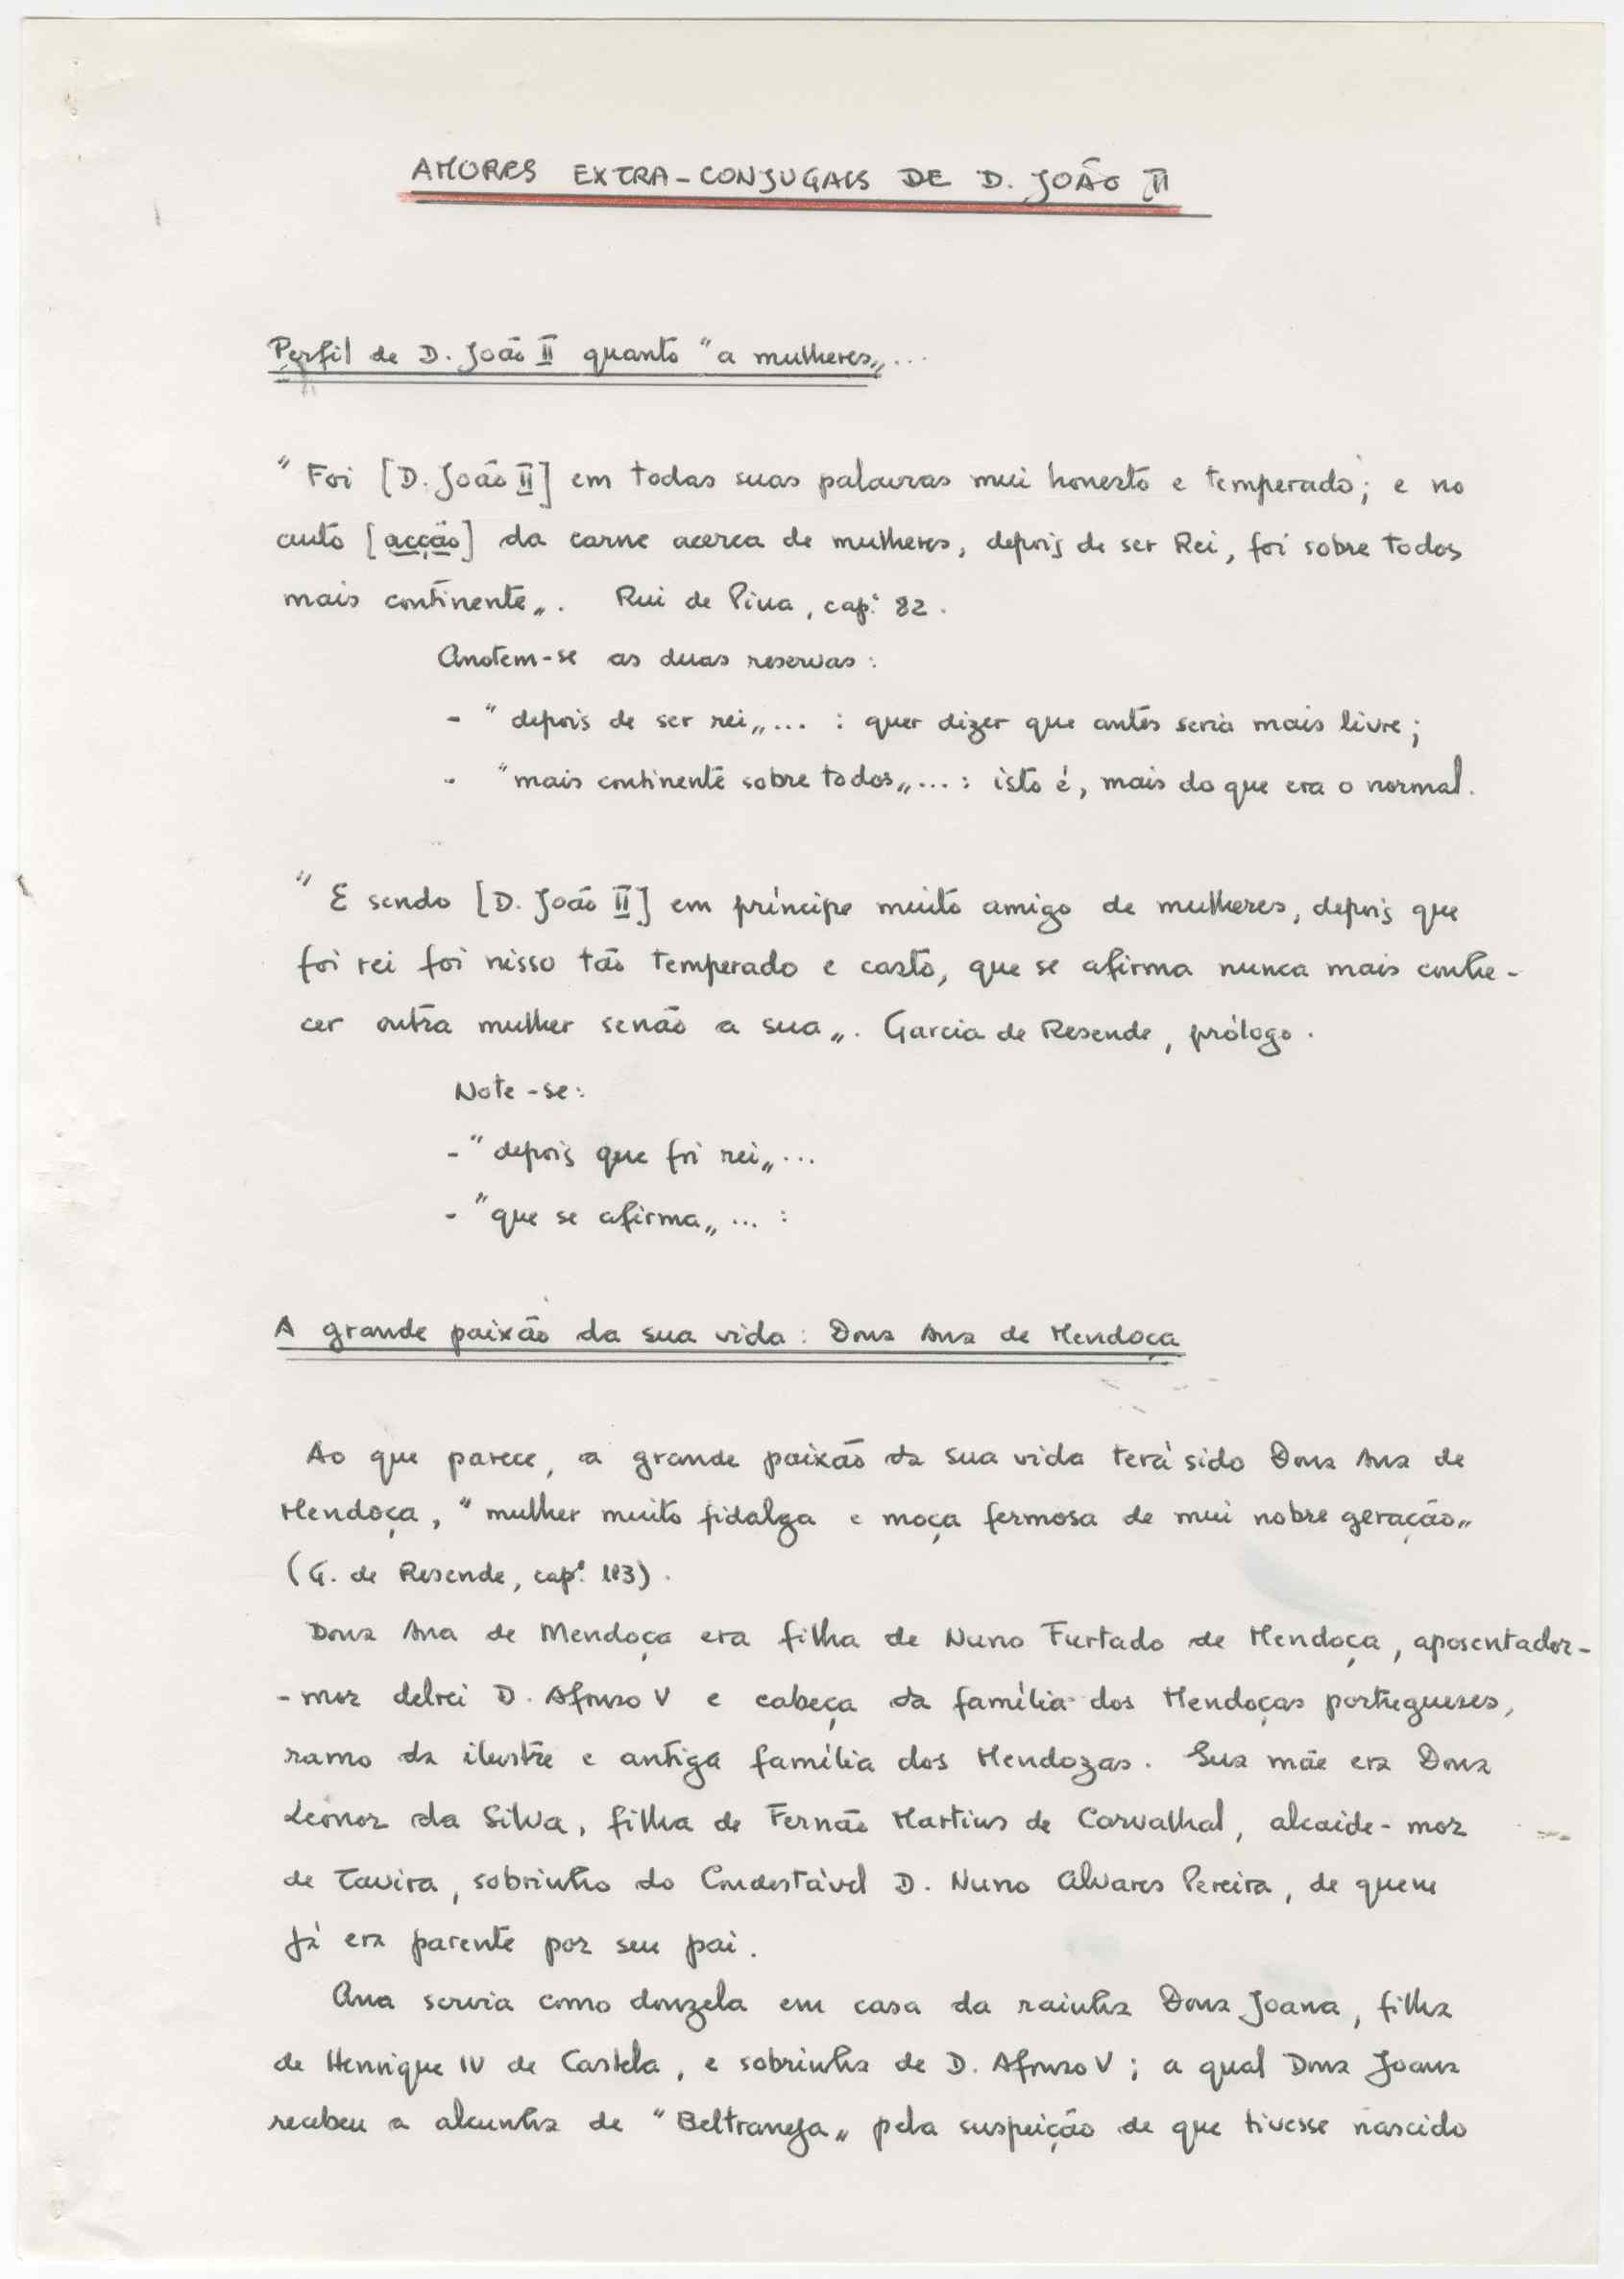 AMORES EXTRA-CONJUGAIS DE D. JOÃO II
Perfil de D. João II quanto "a mulheres„...
"Foi [D. João II] em todas suas palavras mui honesto e temperado; e no
auto [acção] da carne acerca de mulheres, depois de ser Rei, foi sobre todos
mais continente„. Rui de Pina, cap.º 82.
Anotem-se as duas reservas:
- "depois de ser rei„... : quer dizer que antes seria mais livre;
- "mais continente sobre todos„...: isto é, mais do que era o normal.
"E sendo [D. João II] em príncipe muito amigo de mulheres, depois que
foi rei foi nisso tão temperado e casto, que se afirma nunca mais conhe-
cer outra mulher senão a sua„. Garcia de Resende, prólogo.
Note-se:
- "depois que foi rei„...
- "que se afirma„... :
A grande paixão da sua vida: Dona Ana de Mendoça
Ao que parece, a grande paixão da sua vida terá sido Dona Ana de
Mendoça, "mulher muito fidalga e moça fermosa de mui nobre geração„
(G. de Resende, cap.º 113).
Dona Ana de Mendoça era filha de Nuno Furtado de Mendoça, aposentador-
-mor delrei D. Afonso V e cabeça da família dos Mendoças portugueses,
ramo da ilustre e antiga família dos Mendozas. Sua mãe era Dona
Leonor da Silva, filha de Fernão Martins de Carvalhal, alcaide-mor
de Tavira, sobrinho do Condestável D. Nuno Alvares Pereira, de quem
já era parente por seu pai.
Ana servia como donzela em casa da rainha Dona Joana, filha
de Henrique IV de Castela, e sobrinha de D. Afonso V; a qual Dona Joana
recebeu a alcunha de "Beltraneja„ pela suspeição de que tivesse nascido